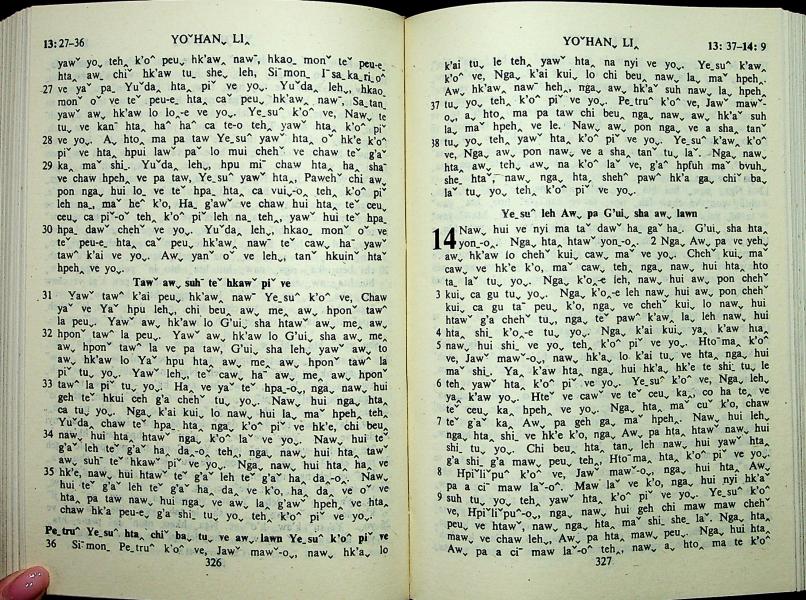 13:27-36 YOˇHANˬ LI˰
yawˇ yoˬ teh˰ k'oˆ peuˬ hk'awˬ nawˉ, hkaoˍ monˇ teˇ peu-eˍ
htaˍ awˬ chiˇ hk'aw tuˬ sheˬ leh, Siˉmon Iˉsaˍkaˍriˍoˆ
27 ve yaˇ pa Yuˇdaˬ htaˬ piˇ ve yoˬ. Yuˇdaˬ lehˬ, hkaoˍ
monˇ oˇ ve teˇ peu-eˍ htaˬ caˇ peuˬ hk'awˬ nawˉ, Saˍtanˍ
yawˇ awˬ hk'aw lo loˍ-e ve yoˬ. Yeˍsuˆ k'oˆ ve, Nawˬ te
tuˬ ve kanˉ htaˬ haˆ haˆ ca te-o tehˬ yawˇ htaˬ k'oˆ piˇ
28 ve yoˬ. Aˬ htoˬ ma pa taw Yeˍsuˆ yawˇ htaˬ oˇ hk'e k'oˆ
piˇ ve htaˬ hpui lawˇ paˇ lo mui chehˇ ve chaw teˇ g'aˇ
29 kaˬ maˇ shiˍ. Yuˇdaˬ lehˬ, hpu miˉ chaw htaˬ haˬ shaˉ
ve chaw hpehˬ ve pa taw, Yeˍsuˆ yawˇ htaˬ, Pawehˇ chi awˬ
pon nga hui loˬ ve teˇ hpaˬ htaˬ ca vuiˬ-oˬ tehˬ k'oˆ piˇ
leh naˍ, maˇ heˆ k'o, Haˬ g'awˇ ve chaw hui htaˬ teˇ ceuˬ
ceuˬ ca piˇ-oˇ tehˬ k'oˆ piˇ leh na tehˬ, yawˇ hui teˇ hpaˍ
30 hpaˍ dawˇ chehˇ ve yoˬ. Yuˇdaˬ lehˬ, hkaoˍ monˇ oˇ ve
teˇ peu-eˍ htaˬ caˇ peuˬ hk'awˬ nawˉ teˇ cawˬ haˉ yawˇ
tawˆ k'ai ve yoˬ. Awˬ yanˇ oˇ ve lehˬ, tanˇ hkuinˆ htaˇ
hpehˬ ve yoˬ.
Tawˇ awˬ suhˉ teˇ hkawˇ piˇ ve
31 Yawˇ tawˆ k'ai peuˬ hk'awˬ nawˉ Yeˍsuˆ k'oˆ ve, Chaw
yaˇ ve Yaˇ hpu lehˬ, chi beuˬ awˬ meˬ awˬ hponˇ tawˆ
la peuˬ. Yawˇ awˬ hk'aw lo G'uiˬ sha htawˇ awˬ meˬ awˬ
32 hponˇ tawˆ la peuˬ. Yawˇ awˬ hk'aw lo G'uiˬ sha awˬ me
awˬ hponˇ tawˆ la ve pa taw, G'uiˬ sha lehˬ yawˇ awˬ to
awˬ hk'aw lo Yaˇ hpu htaˬ awˬ meˬ awˬ hponˇ tawˆ la
piˇ tuˬ yoˬ. Yawˇ lehˬ, teˇ cawˬ haˉ awˬ meˬ awˬ hponˇ
33 tawˆ la piˇ tuˬ yoˬ. Haˬ ve yaˇ teˇ hpaˍ-oˬ, ngaˬ nawˬ hui
geh teˇ hkui ceh g'a chehˇ tuˬ yoˬ. Nawˬ hui ngaˬ htaˬ
ca tuˬ yoˬ. Ngaˬ k'ai kuiˬ lo nawˬ hui laˬ maˇ hpehˬ tehˬ
Yuˇdaˬ chaw teˇ hpaˍ htaˬ ngaˬ k'oˆ piˇ ve hk'e, chi beuˬ
34 nawˬ hui htaˬ htawˇ ngaˬ k'oˆ laˇ ve yoˬ. Nawˬ hui teˇ
g'aˇ leh teˇ g'aˇ haˬ daˬ-oˬ tehˬ, ngaˬ nawˬ hui htaˬ tawˇ
awˬ suhˉ teˇ hkawˇ piˇ ve yoˬ. Ngaˬ nawˬ hui htaˬ haˬ ve
35 hk'e, nawˬ hui htawˇ teˇ g'aˇ leh teˇ g'aˇ haˬ daˬ-oˬ. Nawˬ
hui teˇ g'aˇ leh teˇ g'aˇ haˬ daˬ ve k'o, haˬ daˬ ve oˇ ve
htaˬ pa taw nawˬ hui nga ve awˬ laˬ g'awˇ hpehˬ ve htaˬ
chaw hk'a peu-eˬ g'a shiˬ tuˬ yoˬ tehˬ k'oˆ piˇ ve yoˬ.
Peˍtruˆ Yeˍsuˆ htaˬ chiˇ baˬ tuˬ ve awˬ lawn Yeˍsuˆ k'oˆ piˇ ve
36 Siˉmon Peˍtruˆ k'oˆ ve, Jawˇ mawˇ-oˬ, nawˬ hk'aˬ lo
326
YOˇHANˬ LI˰ 13: 37-14: 9
k'ai tuˬ le tehˬ yawˇ htaˬ na nyi ve yoˬ. Yeˍsuˆ k'awˬ
k'oˆ ve, Ngaˬ k'ai kuiˬ lo chi beuˬ nawˬ laˬ maˇ hpehˬ.
Awˬ hk'awˬ nawˉ hehˬ, ngaˬ awˬ hk'aˇ suh nawˬ laˬ hpehˬ
37 tuˬ yoˬ tehˬ k'oˆ piˇ ve yoˬ. Peˍtruˆ k'oˆ ve, Jawˇ mawˇ-
oˬ, aˬ htoˬ ma pa taw chi beuˬ ngaˬ nawˬ awˬ hk'aˇ suh
laˬ maˇ hpehˬ ve le. Nawˬ awˬ pon ngaˬ ve a sha tanˇ
38 tuˬ yoˬ tehˬ yawˇ htaˬ k'oˆ piˇ ve yoˬ. Yeˍsuˆ k'awˬ k'oˆ
ve, Ngaˬ awˬ pon nawˬ ve a shaˬ tanˇ tuˬ laˇ. Ngaˬ nawˬ
htaˬ awˬ tehˬ awˬ na k'oˆ laˇ ve, g'aˆ hpfuh maˇ bvuhˬ
sheˬ htaˇ, nawˬ ngaˬ htaˬ shehˆ pawˇ hk'a gaˬ chiˇ baˬ
laˇ tuˬ yoˬ tehˬ k'oˆ piˇ ve yoˬ.
Yeˍsuˆ leh Awˬ pa G'uiˬ sha awˬ lawn
14 Nawˬ hui ve nyi ma taˇ dawˇ haˬ gaˇ haˬ. G'uiˬ sha htaˬ
yonˬ-oˬ. Ngaˬ htaˬ htawˇ yonˬ-oˬ. 2 Ngaˬ Awˬ pa ve yehˬ
awˬ hk'aw lo chehˇ kuiˬ cawˬ maˇ ve yoˬ. Chehˇ kuiˬ maˇ
cawˬ ve hk'e k'o, maˇ cawˬ tehˬ ngaˬ nawˬ hui htaˬ hto
taˬ laˇ tuˬ yoˬ. Ngaˬ k'oˬ-e leh, nawˬ hui awˬ pon chehˇ
3 kuiˬ ca gu tuˬ yoˬ. Ngaˬ k'oˬ-e leh nawˬ hui awˬ pon chehˇ
kuiˬ ca gu taˉ peuˬ k'o, ngaˬ ve chehˇ kuiˬ lo nawˬ hui
htawˇ g'a chehˇ tuˬ, ngaˬ teˇ pawˆ k'awˬ laˬ leh nawˬ hui
4 htaˬ shiˬ k'oˬ-e tuˬ yoˬ. Ngaˬ k'ai kuiˬ yaˬ k'aw htaˬ
5 nawˬ hui shiˬ ve yoˬ tehˬ k'oˆ piˇ ve yoˬ. Htoˉmaˬ k'oˆ
ve, Jawˇ mawˇ-oˬ, nawˬ hk'aˬ lo k'ai tuˬ ve htaˬ ngaˬ hui
maˇ shiˬ. Yaˬ k'aw htaˬ ngaˬ hui hk'aˬ hk'e te shiˬ tuˬ le
6 tehˬ yawˇ htaˬ k'oˆ piˇ ve yoˬ. Yeˍsuˆ k'oˆ ve, Ngaˬ lehˬ
yaˬ k'aw yoˬ. Hteˇ ve cawˇ ve teˇ ceuˬ kaˬ, co haˬ te ve
teˇ ceuˬ kaˬ hpehˬ ve yoˬ. Ngaˬ htaˬ maˇ cuˇ k'o, chaw
7 teˇ g'aˇ kaˬ Awˬ pa geh gaˬ maˇ hpehˬ. Nawˬ hui lehˬ
ngaˬ htaˬ shiˬ ve hk'e k'o, ngaˬ Awˬ pa htaˬ htawˇ nawˬ hui
shiˬ tuˬ yoˬ. Chi beuˬ htaˬ tanˬ leh nawˬ hui yawˇ htaˬ
g'a shiˬ g'a mawˬ peuˬ tehˬ Htoˉmaˬ htaˬ k'oˆ piˇ ve yoˬ.
8 Hpiˇliˇpuˆ k'oˆ ve, Jawˇ mawˇ-oˬ, ngaˬ hui htaˬ Awˬ
pa a ciˉ maw laˇ-oˆ. Maw la ve k'o, ngaˬ hui nyi hk'aˇ
9 suh tuˬ yoˬ tehˬ yawˇ htaˬ k'oˆ piˇ ve yoˬ. Yeˍsuˆ k'oˆ
ve, Hpiˇliˇpuˆ-oˬ, ngaˬ nawˬ hui geh chi maw maw chehˇ
peuˬ ve htawˇ, nawˬ ngaˬ htaˬ maˇ shiˬ sheˬ laˇ. Ngaˬ htaˬ
mawˬ ve chaw lehˬ, Awˬ pa htaˬ mawˬ peuˬ. Ngaˬ hui htaˬ
Awˬ pa a ciˉ maw laˇ-oˆ tehˬ, nawˬ aˬ htoˬ ma te k'oˆ
327